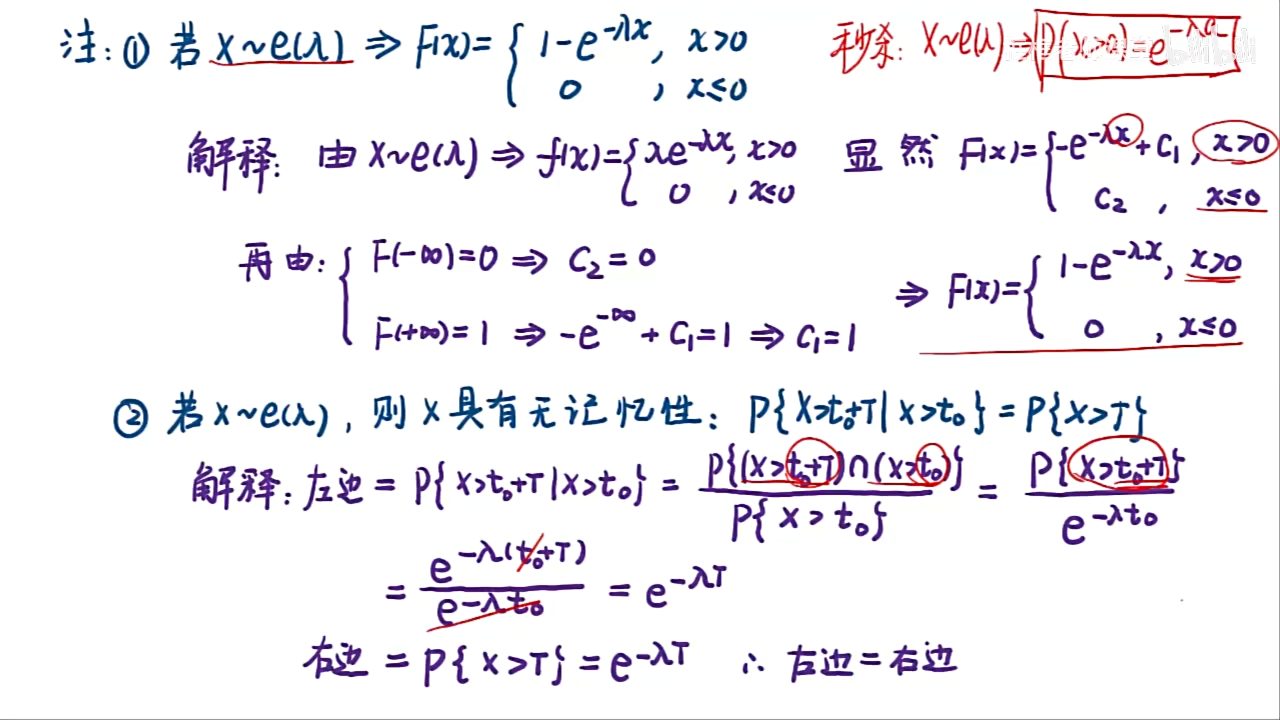 注: ① 若 X~e(λ) ⇒ F(x)= { 1-e^{-λx}, x>0
0 , x≤0
秒杀: X~e(λ) ⇒ P(X>a)=e^{-λa}
解释: 由 X~e(λ) ⇒ f(x)= { λe^{-λx}, x>0
0 , x≤0
显然 F(x)= { -e^{-λx}+C₁, x>0
C₂ , x≤0
再由: { F(-∞)=0 ⇒ C₂=0
F(+∞)=1 ⇒ -e^{-∞}+C₁=1 ⇒ C₁=1
⇒ F(x)= { 1-e^{-λx}, x>0
0 , x≤0
② 若 X~e(λ), 则 X 具有无记忆性: P{X>t₀+T|X>t₀}=P{X>T}
解释: 左边 = P{X>t₀+T|X>t₀} = P{(X>t₀+T)∩(X>t₀)} / P{X>t₀} = P{X>t₀+T} / e^{-λt₀}
= e^{-λ(t₀+T)} / e^{-λt₀} = e^{-λT}
右边 = P{X>T} = e^{-λT} ∴ 左边=右边